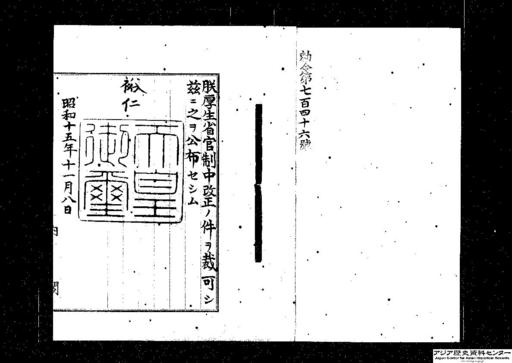 勅令第七百四十六號
朕厚生省官制中改正ノ件ヲ裁可シ
茲ニ之ヲ公布セシム
裕仁
天皇御璽
昭和十五年十一月八日
内閣
アジア歴史資料センター
Japan Center for Asian Historical Records